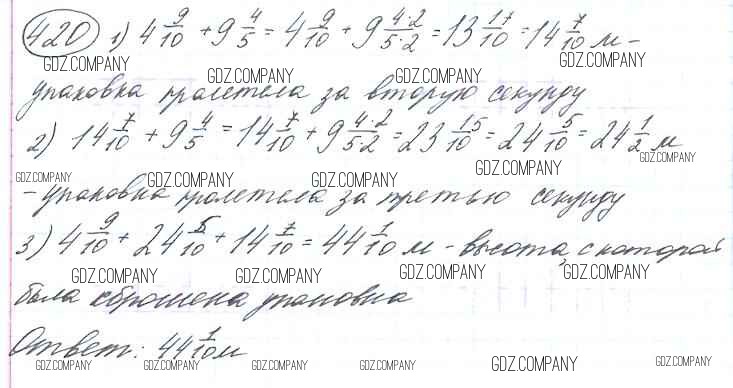 420 1) 4 9/10 + 9 4/5 = 4 9/10 + 9 4·2/5·2 = 13 17/10 = 14 7/10 м -
GDZ.COMPANY GDZ.COMPANY GDZ.COMPANY GDZ.COMPANY
упаковка пролетела за вторую секунду
GDZ.COMPANY GDZ.COMPANY GDZ.COMPANY
2) 14 7/10 + 9 4/5 = 14 7/10 + 9 4·2/5·2 = 23 15/10 = 24 5/10 = 24 1/2 м
GDZ.COMPANY GDZ.COMPANY GDZ.COMPANY GDZ.COMPANY GDZ.COMPANY
- упаковка пролетела за третью секунду
3) 4 9/10 + 24 5/10 + 14 7/10 = 44 1/10 м - высота, с которой
GDZ.COMPANY GDZ.COMPANY GDZ.COMPANY GDZ.COMPANY
была сброшена упаковка
Ответ: 44 1/10 м
GDZ.COMPANY GDZ.COMPANY GDZ.COMPANY GDZ.COMPANY GDZ.COMPANY GDZ.COMPANY